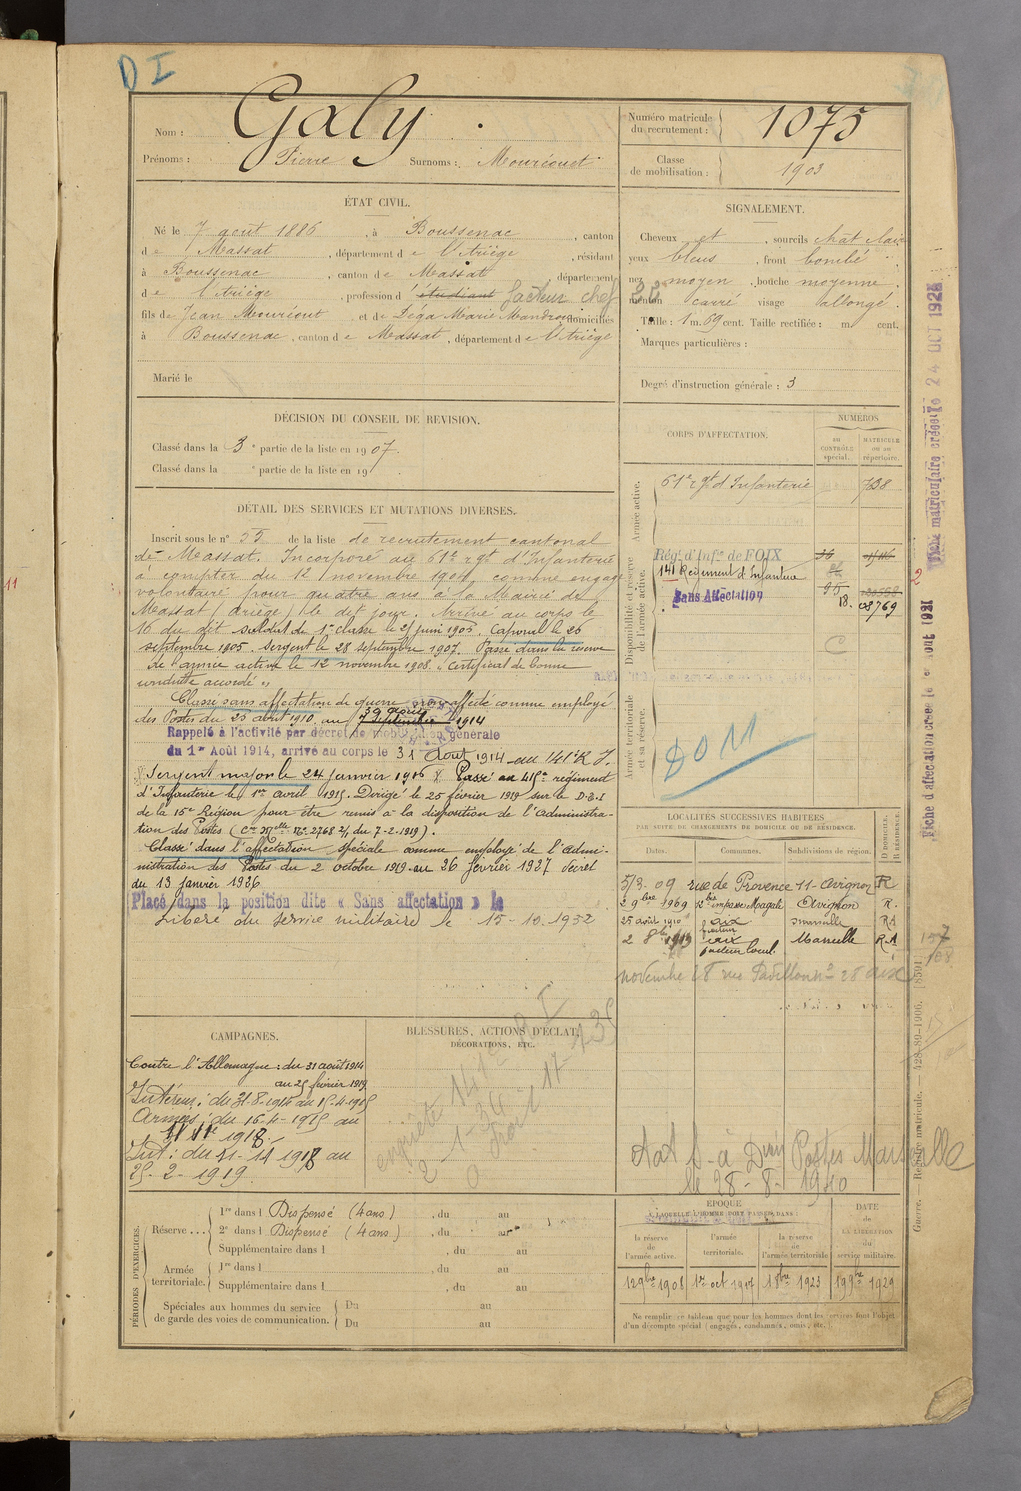 D I
Nom : Galy
Prénoms : Pierre Surnoms : Mouréout
Numéro matricule
du recrutement : 1075
Classe
de mobilisation : 1903
ÉTAT CIVIL.
Né le 7 août 1886, à Boussenac, canton
de Massat, département de l'Ariège, résidant
à Boussenac, canton de Massat, département
de l'Ariège, profession d'étudiant facteur chef
fils de Jean Mouréout et de Dega Marie domiciliés
à Boussenac, canton de Massat, département de l'Ariège
Marié le
SIGNALEMENT.
Cheveux et, sourcils chât clair
yeux bleus, front bombé
nez moyen, bouche moyenne
menton carré visage allongé.
Taille : 1 m. 69 cent. Taille rectifiée : m. cent.
Marques particulières :
Degré d'instruction générale : 3
DÉCISION DU CONSEIL DE REVISION.
Classé dans la 3e partie de la liste en 1907.
Classé dans la e partie de la liste en 19
DÉTAIL DES SERVICES ET MUTATIONS DIVERSES.
Inscrit sous le n° 35 de la liste de recrutement cantonal
de Massat. Incorporé au 61e rgt d'Infanterie
à compter du 12 novembre 1904, comme engagé
volontaire pour quatre ans à la Mairie de
Massat (Ariège) le dit jour. Arrivé au corps le
16 du dit soldat de 1re classe le 21 juin 1905. Caporal le 26
septembre 1905. Sergent le 28 septembre 1907. Passé dans la réserve
de l'armée active le 12 novembre 1908. Certificat de bonne
conduite accordé "
Classé sans affectation de guerre non affecté comme employé
des Postes du 25 août 1910 au 30 août 7 septembre 1914
Rappelé à l'activité par décret de mobilisation générale
du 1er Août 1914, arrivé au corps le 31 Août 1914 au 141e R. I.
Sergent major le 24 janvier 1916 Passé au 415e régiment
d'Infanterie le 1er avril 1915. Dirigé le 25 février 1919 sur le D.E.I
de la 15e Région pour être remis à la disposition de l'Administra-
tion des Postes (Cre Mlle No 2768 2/1 du 7-2-1919).
Classé dans l'affectation spéciale comme employé de l'Admi-
nistration des Postes du 2 octobre 1919 au 26 février 1927 décret
du 13 janvier 1926
Placé dans la position dite « Sans affectation » le
Libéré du service militaire le 15-10-1932
CORPS D'AFFECTATION.
NUMÉROS
au CONTRÔLE spécial.
MATRICULE ou au répertoire.
Armée active.
61e rgt d'Infanterie 738
Disponibilité et réserve de l'armée active.
Régt d'Infie de FOIX
141 Régiment d'Infanterie
Sans Affectation
18. 08769
C
Armée territoriale et sa réserve.
DOM
LOCALITÉS SUCCESSIVES HABITÉES
PAR SUITE DE CHANGEMENTS DE DOMICILE OU DE RÉSIDENCE.
Dates. Communes. Subdivisions de région. D DOMICILE. R RÉSIDENCE.
5/3-09 rue de Provence 11 Avignon R
2 9bre 1909 12 bis impasse Magali Avignon R.
25 août 1910 Aix facteur Marseille RA
2 8bre 1913 Aix facteur local Marseille R.A
novembre 28 rue Pavillon n° 28 Aix
Fiche matriculaire créée le 24 OCT 1928
Fiche d'affectation créée le Août 1931
157
108
Guerre. — Registre matricule. — 428-89-1906. [8501]
CAMPAGNES.
Contre l'Allemagne : du 31 août 1914
au 25 février 1919
Intérieur : du 31-8-1914 au 15-4-1915
Armées : du 16-4-1915 au
11 11 1918.
Int : du 11-11 1918 au
25-2-1919.
BLESSURES, ACTIONS D'ÉCLAT,
DÉCORATIONS, ETC.
enquête 141e R I
Aat D-à Dion Postes Marseille
le 28-8-1940
PÉRIODES D'EXERCICES.
Réserve... 1re dans l Dispensé (4 ans), du au
2e dans l Dispensé (4 ans), du au
Supplémentaire dans l, du au
Armée territoriale. 1re dans l, du au
Supplémentaire dans l, du au
Spéciales aux hommes du service
de garde des voies de communication. Du au
Du au
ÉPOQUE
À LAQUELLE L'HOMME DOIT PASSER DANS :
la réserve de l'armée active.
l'armée territoriale.
la réserve de l'armée territoriale
DATE de LA LIBÉRATION du service militaire.
12 9bre 1908 1er oct 1917 1 8bre 1923 19 9bre 1929
Ne remplir ce tableau que pour les hommes dont les services font l'objet
d'un décompte spécial (engagés, condamnés, omis, etc.).
11
2